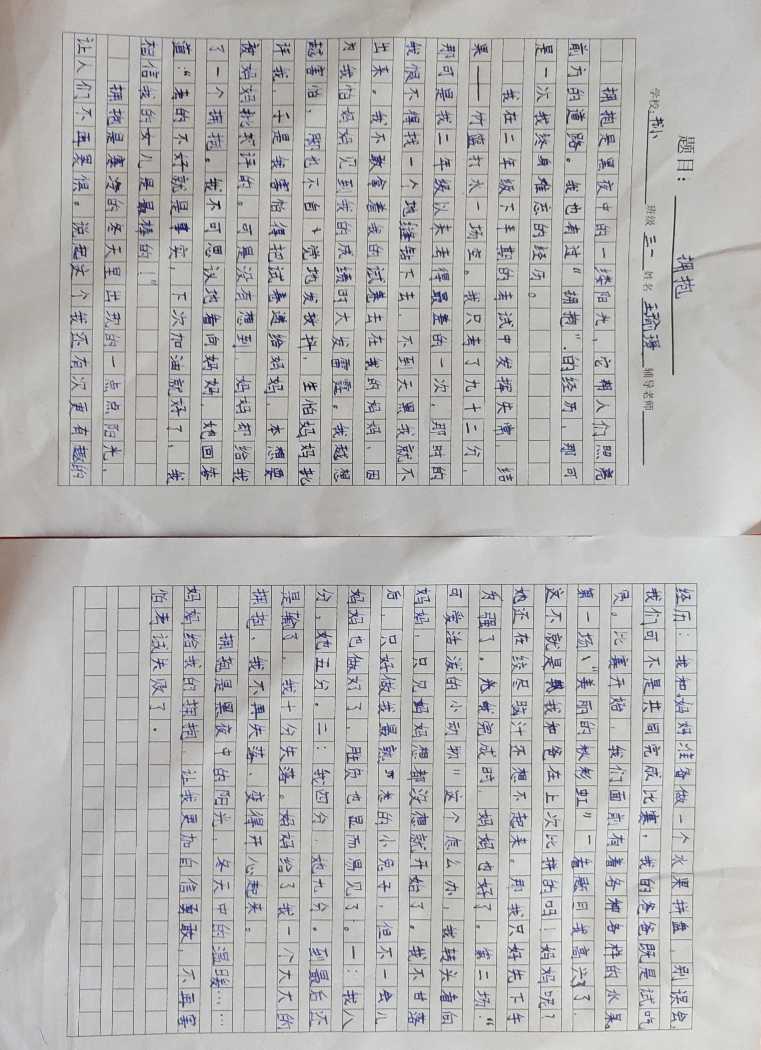 题目：拥抱
学校 书小 班级 三一 姓名 王瑜瑾 辅导老师
拥抱是黑夜中的一缕阳光，它帮人们照亮
前方的道路。我也有过“拥抱”的经历，那可
是一次我终身难忘的经历。
我在二年级下半期的考试中发挥失常，结
果——竹篮打水一场空。我只考了九十二分，
那可是我二年级以来考得最差的一次，那时的
我恨不得找一个地缝钻下去，不到天黑我就不
出来。我不敢拿着我的试卷去在我的妈妈，因
为我怕妈妈见到我的成绩时大发雷霆。我越想
越害怕，脚也不自主地发抖，生怕妈妈批
评我，于是我害怕得把试卷递给妈妈，本想要
被妈妈批评的。可是没有想到，妈妈却给我
了一个拥抱。我不可思议地看向妈妈，她回答
道：“考的不好就是事实，下次加油就好了，我
相信我的女儿是最棒的！”
拥抱是寒冷的冬天里出现的一点点阳光，
让人们不再畏惧。说起这个我还有次更有趣的
经历：我和妈妈准备做一个水果拼盘，别误会，
我们可不是共同完成比赛，我的爸爸既是试吃
员。比赛开始，我们面前有着各种各样的水果。
第一场：“美丽的彩虹”一看题目我高兴了，
这不就是我和爸在上次比拼的吗！妈妈呢？
她还在绞尽脑汁还想不起来，用我只好先下手
为强了。我完成时，妈妈也好了。第二场：“
可爱活泼的小动物”这个怎么办，我转头看向
妈妈，只见妈妈想都没想就开始了。我不甘落
后，只好做我最熟悉的小兔子，但不一会儿
妈妈也做好了，胜负也显而易见了。一：我八
分，她五分。二：我四分，她九分。到最后还
是输了，我十分失落。妈妈给了我一个大大的
拥抱，我不再失落，变得开心起来。
拥抱是黑夜中的阳光，冬天中的温暖……
妈妈给我的拥抱，让我更加自信勇敢，不再害
怕考试失败了。